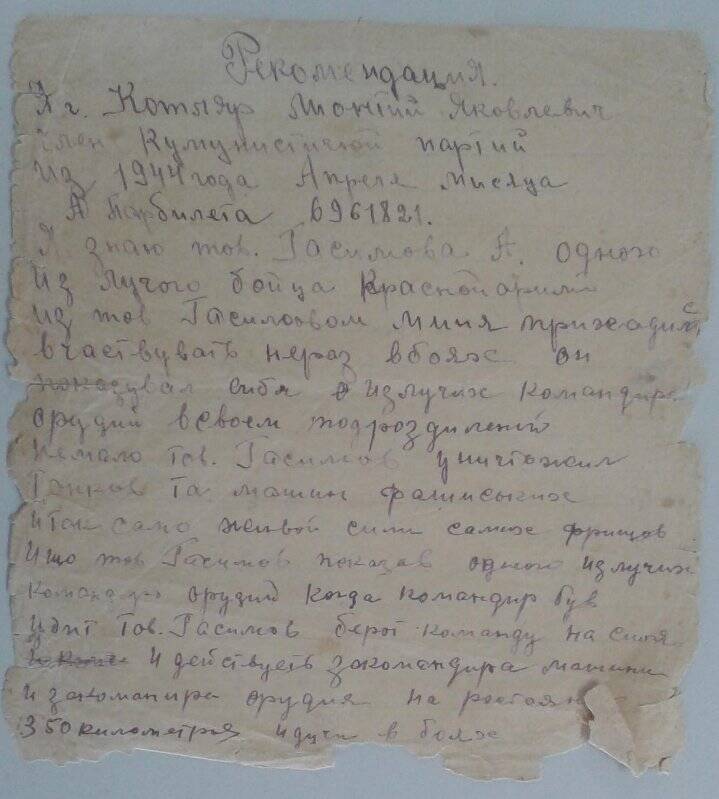 Рекомендация.
Я г. Котляр Монтий Яковлевич
член Кумунистичюй партий
из 1944 года Апреля мисяца
№ Парбилета 6961821.
Я знаю тов. Гасимова А. одного
из лучого бойца Краснойармий
из тов Гасимовом миня прихадилс
вчаствувать нераз вбоях он
показувал сибя излучих командира
орудий всвоем подрозделений
Немало тов. Гасимов уничтожил
Танков та машин фашиских
итак само живой сили самих фрицов
Ищо тов Гасимов показав одного излучих
орудий когда командир був
убит тов. Гасимов берот команду на сибя
и действуеть закомандира машини
и закоманира орудия на ростоян
350 километрия идучи в боях